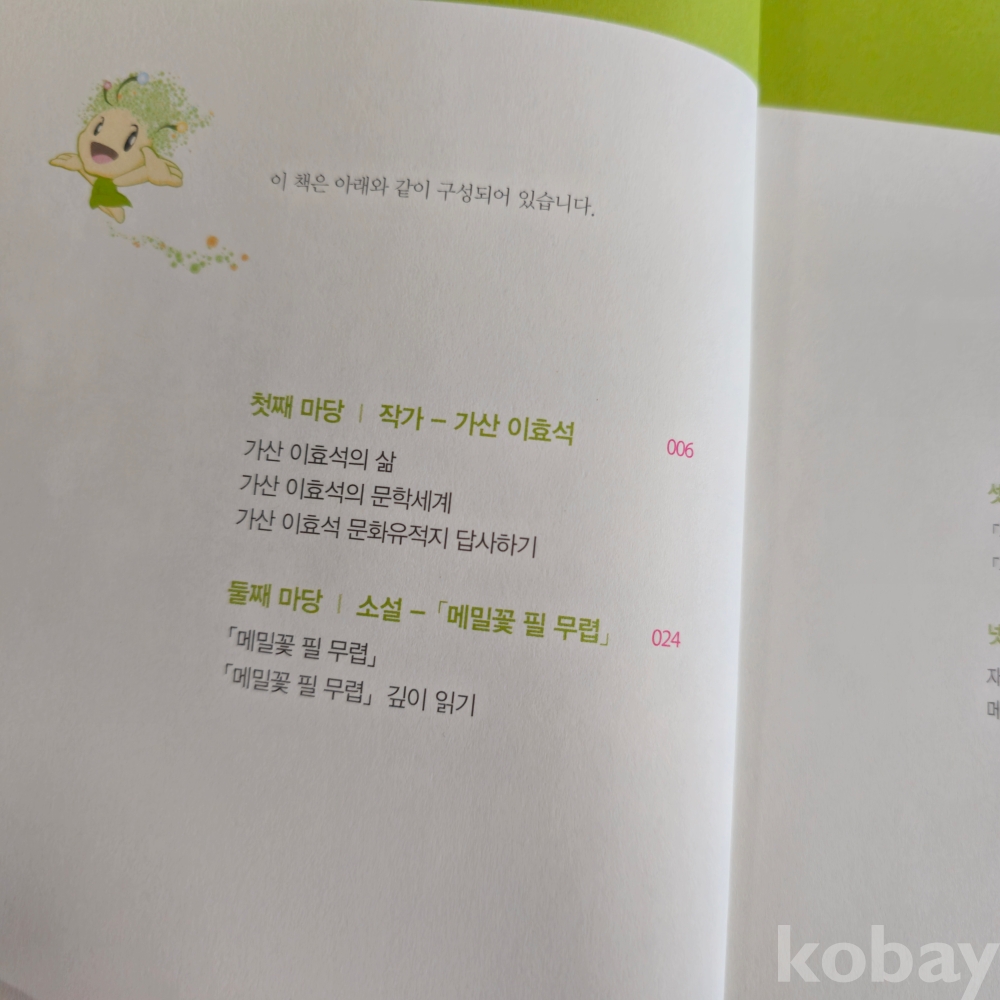 이 책은 아래와 같이 구성되어 있습니다.
첫째 마당 | 작가 – 가산 이효석 006
가산 이효석의 삶
가산 이효석의 문학세계
가산 이효석 문화유적지 답사하기
둘째 마당 | 소설 –「메밀꽃 필 무렵」 024
「메밀꽃 필 무렵」
「메밀꽃 필 무렵」 깊이 읽기
kobay